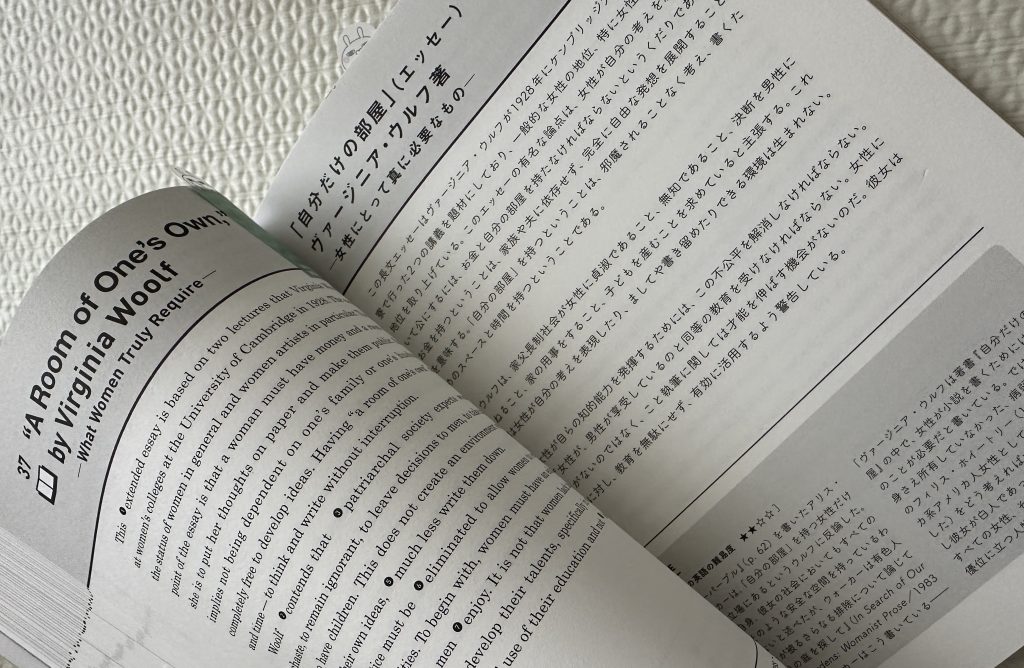 37 "A Room of One's Own,"
by Virginia Woolf
—What Women Truly Require—
This ❶extended essay is based on two lectures that Virginia
at women's colleges at the University of Cambridge in 1928. The
the status of women in general and women artists in particular.
point of the essay is that a woman must have money and a
she is to put her thoughts on paper and make them public.
implies not being dependent on one's family or
completely free to develop ideas. Having "a room of one's own"
and time—to think and write without interruption.
Woolf ❷contends that ❸patriarchal society expects
chaste, to remain ignorant, to leave decisions to men, to
have children. This does not create an environment
their own ideas, ❺much less write them down.
must be ❻eliminated to allow women
To begin with, women must have
men ❼enjoy. It is not that women
develop their talents, specifically
use of their education and not
「自分だけの部屋」(エッセー)
ヴァージニア・ウルフ著
—女性にとって真に必要なもの—
この長文エッセーはヴァージニア・ウルフが1928年にケンブリッジ
寮で行った2つの講義を題材にしており、一般的な女性の地位、特に女性
地位を取り上げている。このエッセーの有名な論点は、女性が自分の考えを
て公にするには、お金と自分の部屋を持たなければならないというくだりであ
お金を持つということは、家族や夫に依存せず、完全に自由な発想を展開すること
を意味する。「自分の部屋」を持つということは、邪魔されることなく考え、書くた
のスペースと時間を持つということである。
ウルフは、家父長制社会が女性に貞淑であること、無知であること、決断を男性に
ねること、家の用事をすること、子どもを産むことを求めていると主張する。これ
女性が自分の考えを表現したり、ましてや書き留めたりできる環境は生まれない。
が自らの知的能力を発揮するためには、この不公平を解消しなければならない。
女性が、男性が享受しているのと同等の教育を受けなければならない。女性に
がないのではなく、こと執筆に関しては才能を伸ばす機会がないのだ。彼女は
に対し、教育を無駄にせず、有効に活用するよう警告している。
英語の難易度 ★★☆☆
ープル」(p. 62) を書いたアリス・
ーは、「自分の部屋」を持つ女性だけ
立場にあるというウルフに反論した。
のような安全な空間を持っているわ
と述べたが、ウォーカーは有色人
さらなる排除について論じて
の庭を探して』(In Search of Our
ens: Womanist Prose／1983
ーはこう書いている――
「ヴァージニア・ウルフは著書『自分だけの
屋』の中で、女性が小説を書くためには
のことが必要だと書いている。
身さえ所有していなかった、病弱
のフィリス・ホイートリー
カ系アメリカ人女性と
た）をどう考えれば
し彼女が白人であ
すべての女性
優位に立つ人